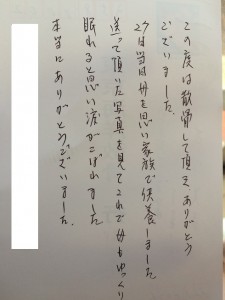 この度は散骨して頂き ありがとう
ございました。
27日当日 母を思い家族で供養しました
送って頂いた写真を見てこれで母もゆっくり
眠れると思い涙がこぼれました
本当にありがとうございました。